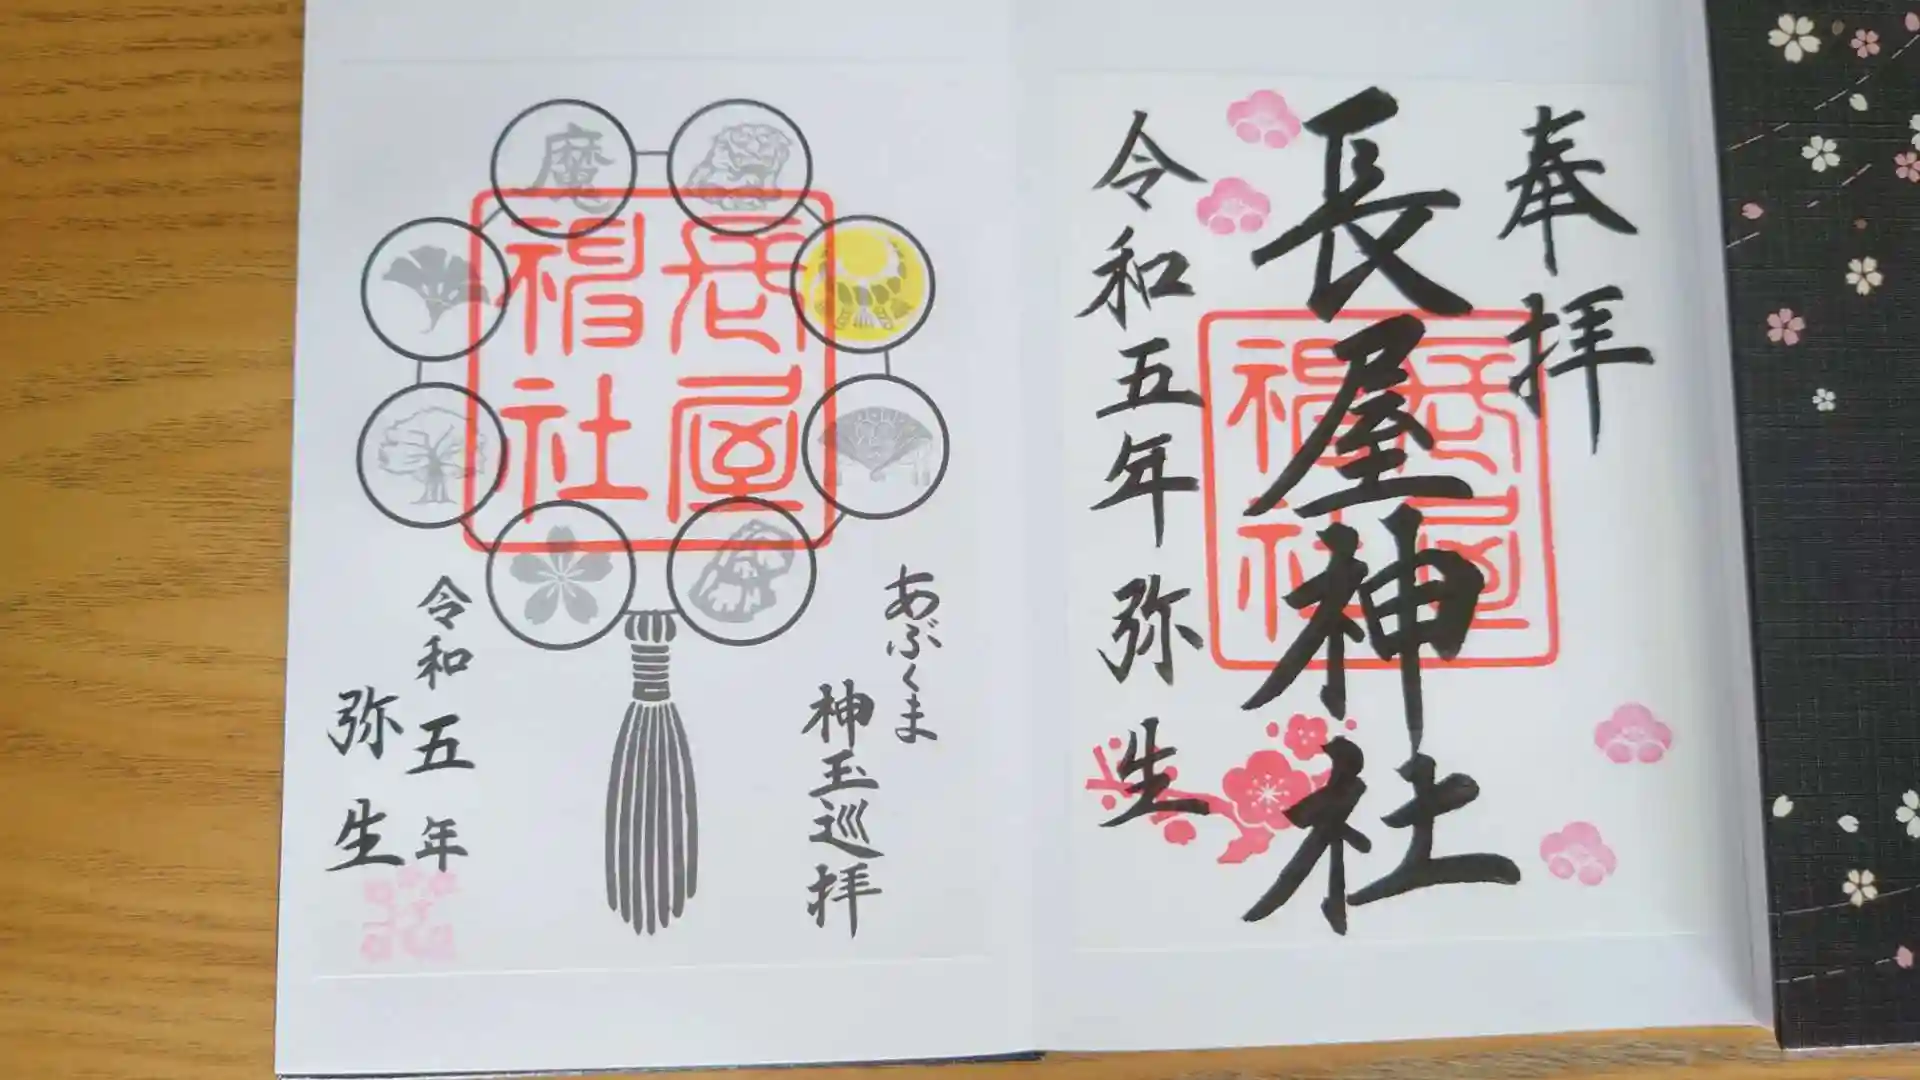 奉拝
長屋神社
令和五年弥生
長屋
神社
あぶくま
神玉巡拝
魔
長屋
神社
令和五年
弥生